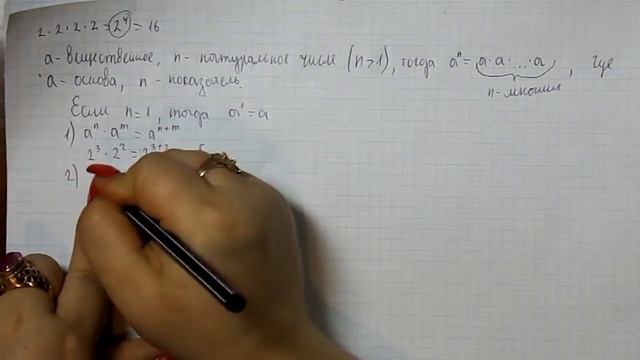 2·2·2·2=2⁴=16
a- вещественное, n- натуральное число (n>1), тогда aⁿ= a·a·...·a, где
n-множит
a- основа, n- показатель.
Если n=1, тогда a¹=a
1) aⁿ·aᵐ=aⁿ⁺ᵐ
2³·2²=
2)